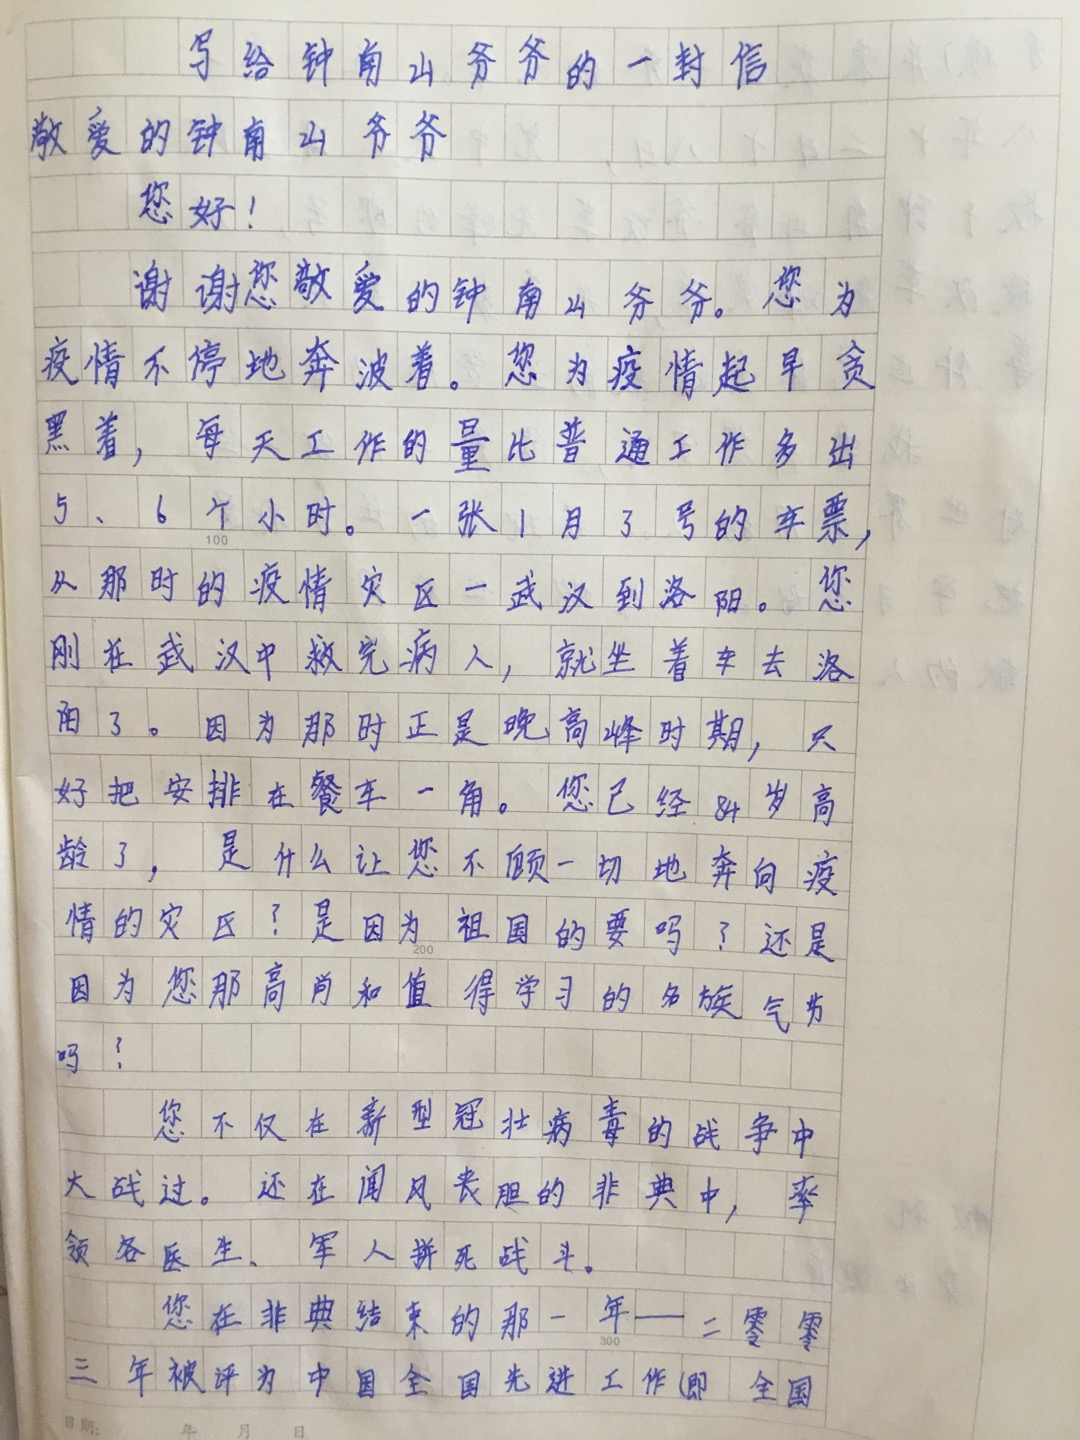 写给钟南山爷爷的一封信
敬爱的钟南山爷爷
您好！
谢谢您敬爱的钟南山爷爷。您为
疫情不停地奔波着。您为疫情起早贪
黑着，每天工作的量比普通工作多出
5、6个小时。一张1月3号的车票，
100
从那时的疫情灾区一武汉到洛阳。您
刚在武汉中救完病人，就坐着车去洛
阳了。因为那时正是晚高峰时期，只
好把安排在餐车一角。您已经84岁高
龄了，是什么让您不顾一切地奔向疫
情的灾区？是因为祖国的要吗？还是
200
因为您那高尚和值得学习的名族气节
吗？
您不仅在新型冠壮病毒的战争中
大战过。还在闻风丧胆的非典中，率
领各医生、军人拼死战斗。
您在非典结束的那一年——二零零
300
三年被评为中国全国先进工作(即全国
日期： 年 月 日